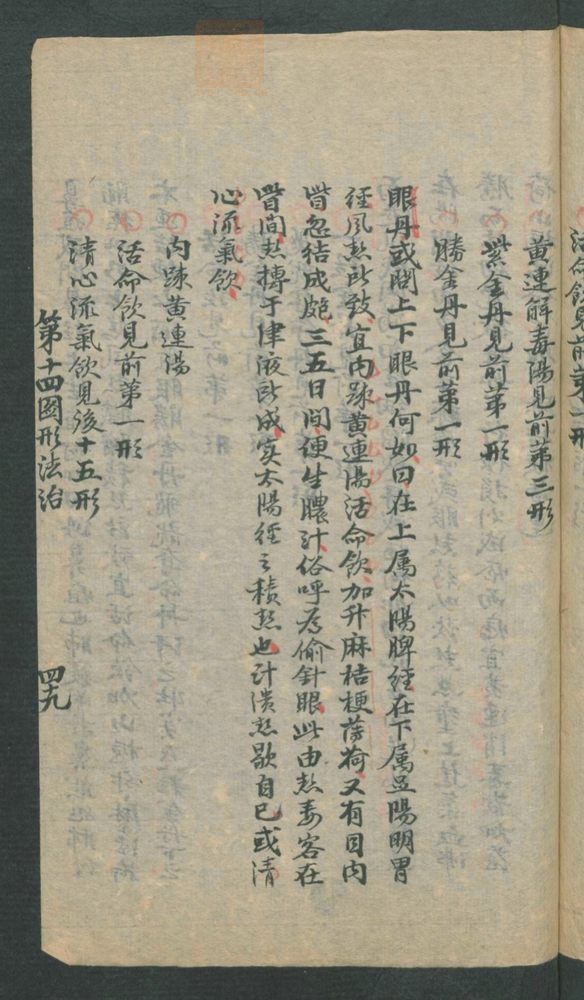 活命飲見前第一形
黃連解毒湯見前第三形
紫金丹見前第一形
勝金丹見前第一形
眼丹或問上下眼丹何如曰在上属太陽脾經在下属足陽明胃
徑風热所致宜内踈黃連湯活命飲加升麻桔梗薄荷又有目内
眥忽结成皰三五日间便生膿汁俗呼为偷針眼此由热毒客在
眥间热搏于津液所成实太陽徑之積热也汁潰热歇自已或清
心流氣飲
内踈黃連湯
活命飲見前第一形
清心流氣飲見後十五形
第十四圖形法治
四九